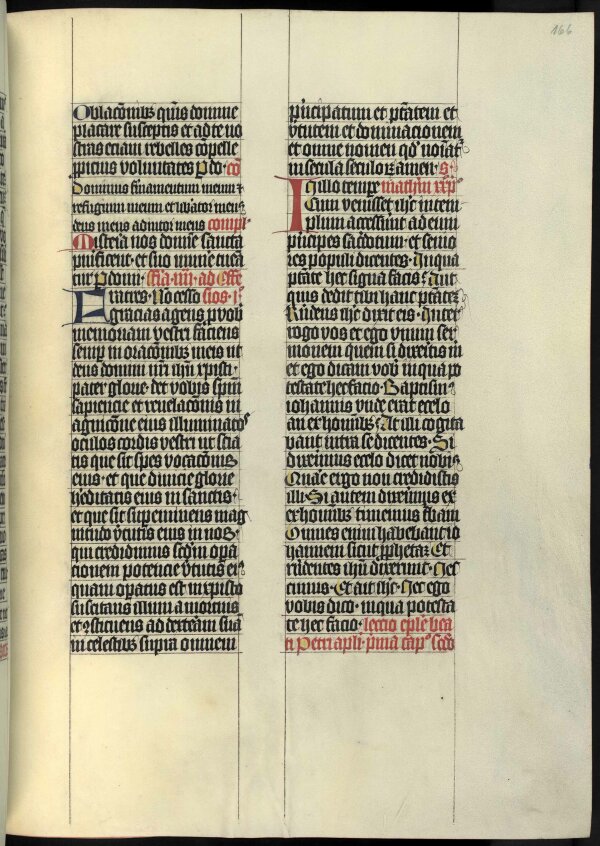 Oblac̄onibꝫ qͣs domine
placare susceptis et ad te no
stras eciam rebelles cōpelle
ꝓpicius voluntates ꝑ do· cō
Dominus firmamentum meum ⁊
refugium meum et liberator meus
deus meus adiutor meus compl'
Misteria nos domine sancta
purificent et suo munere tuea
tur ꝑ domī· ffīa iiii· ad Effe
Fratres· No cesso sios· i·
gracias agens ꝓ vob
memoriam vestri faciens
semp̄ in orac̄onibꝫ meis ut
deus domini nr̄i ih̄u xp̄isti
pater glorie· det vobis sp̄m
sapiencie et reuelac̄onis in
agnic̄one eius illuminatos
oculos cordis vestri ut scia
tis que sit spes vocac̄onis
eius· et que diuicie glorie
h̄editatis eius in sanctis·
et que sit sup̄eminens mag
nitudo v̄tutis eius in nob·
qui credidimus sc̄dm opa
cionem potencie v̄tutis ei⁹
quam operatus est in xp̄isto
suscitans illum a mortuis
et ꝯstituens ad dexteram suā
in celestibꝫ supra omnem
pͥncipatum et ptāatem et
v̄tutem et dominacionem
et omne nomen qd' noīat
in secula seculoꝝ amen· S·
In illo tempr̄e mathm̄ xxjº
Cum venisset ih̄c in tem
plum accesserunt ad eum
pͥncipes sac̄dotum et senio
res populi dicentes· In qua
ptāate hec signa facis· Aut
quis dedit tibi hanc ptāatē·
Rn̄dens ih̄c dixit eis· Inter
rogo vos et ego vnum ser
monem quem si dixeritis m̄
et ego dicam vob in qua po
testate hec facio· Baptism⁹
iohannis vnde erat e celo
an ex hoīnibꝫ· At illi cogita
bant intra se dicentes· Si
dixerimus e celo dicet nobis
Quāe ergo non credidistis
illi· Si autem dixerimus ex
ex hoīnibꝫ timemus tbam
Omnes enim habebant io
hannem sicut ꝓphetaꝫ Et
rn̄dentes ih̄u dixerunt· Nes
cimus· Et ait ih̄c· Nec ego
vobis dico· in qua potesta
te hec facio· lectio ep̄le bea
ti Petri apl̄i· pͥma cap· sc̄do